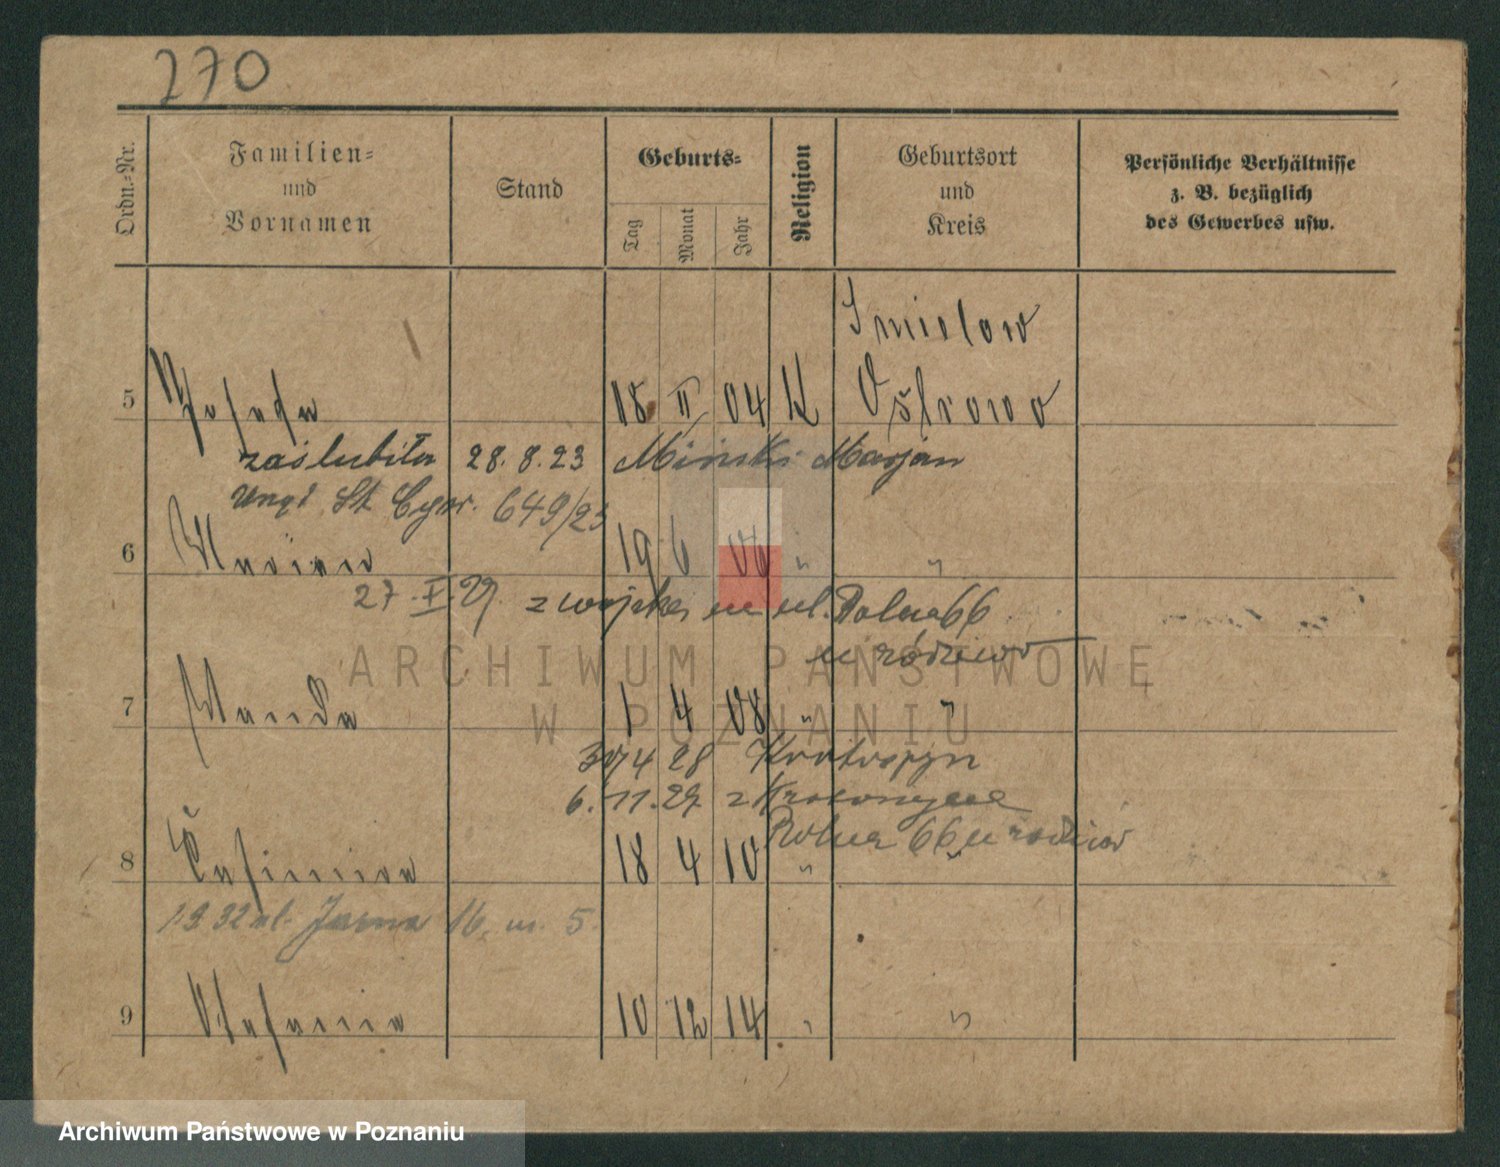 270
Ordn.-Nr.
Familien-
und
Vornamen
Stand
Geburts-
Tag
Monat
Jahr
Religion
Geburtsort
und
Kreis
Persönliche Verhältnisse
z. B. bezüglich
des Gewerbes usw.
Smielow
5 Josefa 18 II 04 K Ostrowo
zaślubiła 28. 8. 23 Miński Marjan
Urząd St. Cyw. 649/23
6 Marian 19 6 06 " "
27. V. 29 z wojska na ul. Rolna 66
u rodziców
ARCHIWUM PAŃSTWOWE
7 Wanda 1 4 08 " "
W POZNANIU
30/4 28 Krotoszyn
6. 11. 29 z Krotoszyna
Rolna 66 u rodziców
8 Kasimira 18 4 10 " "
1932 ul. Jasna 16 m. 5.
9 Stefania 10 12 14 " "
Archiwum Państwowe w Poznaniu